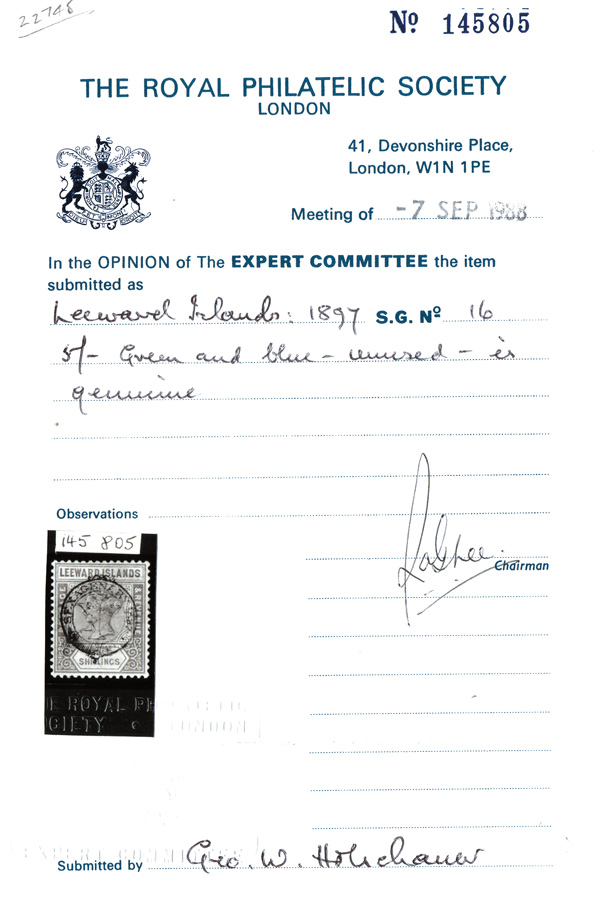 22748
Nº 145805
THE ROYAL PHILATELIC SOCIETY
LONDON
41, Devonshire Place,
London, W1N 1PE
Meeting of -7 SEP 1988
In the OPINION of The EXPERT COMMITTEE the item
submitted as
Leeward Islands: 1897 S.G. Nº 16
5/- Green and blue - unused - is
genuine
Observations
145 805
LEEWARD ISLANDS
SHILLINGS
Chairman
E ROYAL PH
CIETY LONDON
EXPERT COMMITTEE
Submitted by Geo. W. Holschauer